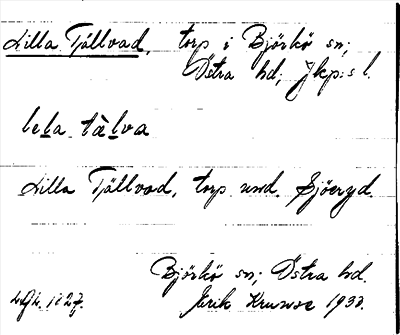 Lilla Tjällvad, torp i Björkö sn;
Östra hd; Jkp:s l.
lela tàlva
Lilla Tjällvad, torp und. Sjöeryd.
Björkö sn; Östra hd.
Erik 1930.